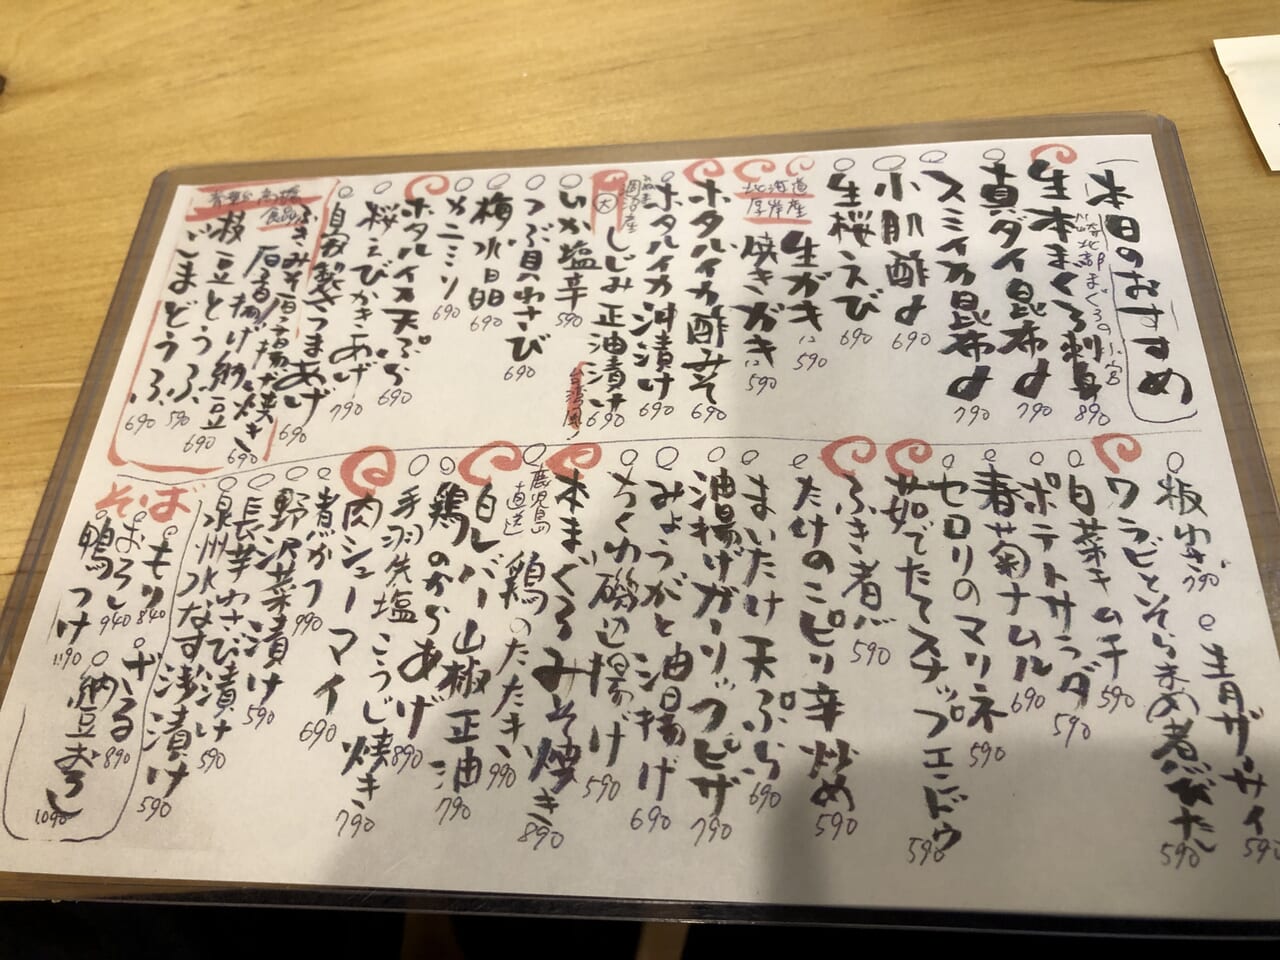 本日のおすすめ
生本まぐろ刺身 890
真ダイ昆布〆 790
スミイカ昆布〆 790
小肌酢〆 690
生桜えび 690
北海道
厚岸産
生ガキ 590
焼きガキ 590
ホタルイカ酢みそ 690
ホタルイカ沖漬け 690
大 しじみ正油漬け 690
台湾風
いか塩辛 590
つぶ貝のわさび 690
梅水晶 690
カニミソ 690
ホタルイカ天ぷら 690
桜えびかきあげ 790
自家製さつまあげ 690
ふきみそ
揚げ納豆 690
枝豆とうふ 590
ざしまどうふ 690
板わさ 790
生青ザーサイ 590
ワラビとそら末め煮びたし 590
白菜キムチ 590
ポテトサラダ 590
春菊ナムル 690
セロリのマリネ 590
茹でたてスナップエンドウ 590
ふき煮 590
たけのこピリ辛炒め 590
まいたけ天ぷら 690
油揚げガーリックピザ 790
みょうがと油揚げ 690
ちくわ磯辺揚げ 590
本まぐろみそ焼き 890
鹿児島
直送
鶏のたたき 990
白レバー山椒正油 790
鶏のからあげ 890
手羽先塩こうじ焼き 790
肉シューマイ 690
煮かつ 990
野沢菜漬け 590
長芋わさび漬け 590
泉州水なす浅漬け 590
そば
もり 840
ざる 890
おろし 940
納豆おろし 1090
鴨つけ 1190